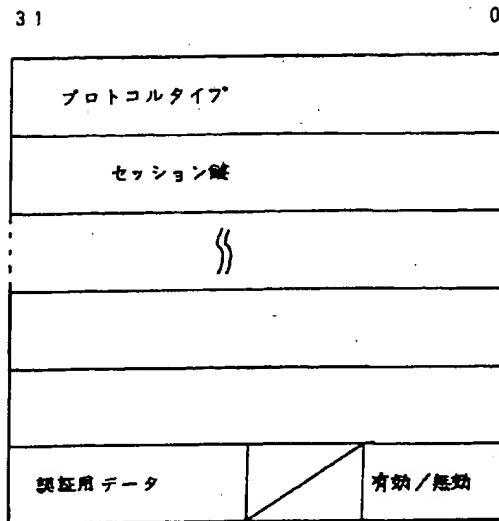 31 0
プロトコルタイプ
セッション鍵
認証用データ 有効/無効